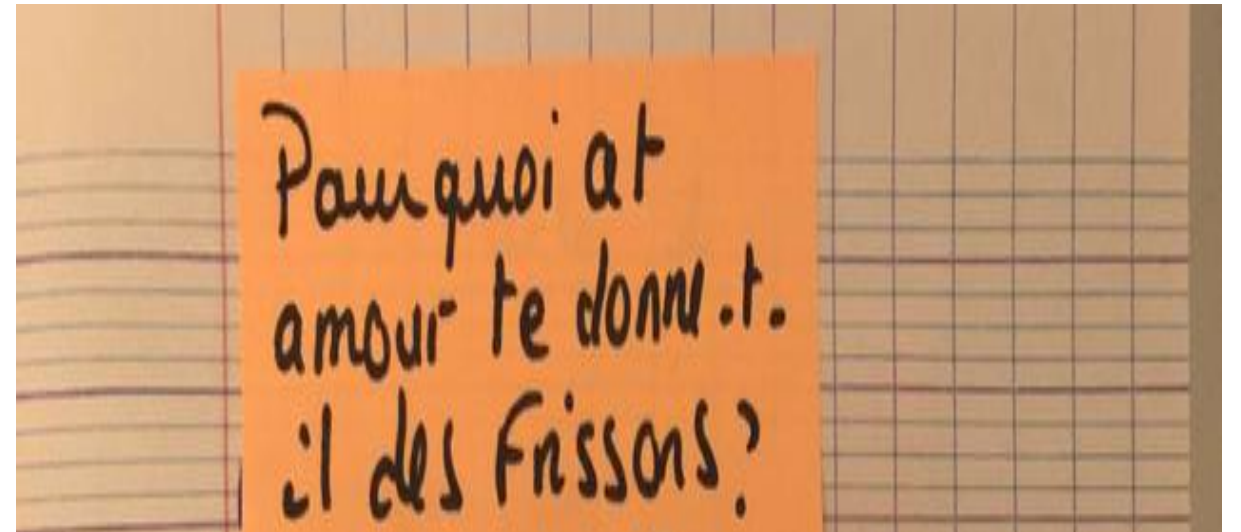 Pourquoi at
amour te donne.t.
il des frissons?